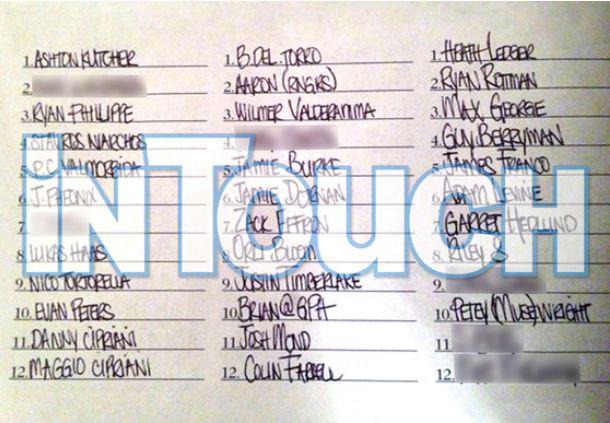 1. ASHTON KUTCHER
2.
3. RYAN PHILLIPPE
4. STAVROS NIARCHOS
5. P.C. VALMORBIDA
6. J. PHEONIX
7.
8. LUKAS HAAS
9. NICO TORTORELLA
10. EVAN PETERS
11. DANNY CIPRIANI
12. MAGGIO CIPRIANI
1. B. DEL TORRO
2. AARON (RNGRS)
3. WILMER VALDERAMMA
4.
5. JAMIE BURKE
6. JAMIE DORNAN
7. ZACK EFFRON
8. ORLY BLOOM
9. JUSTIN TIMBERLAKE
10. BRIAN@GPA
11. JOSH MOND
12. COLIN FARRELL
1. HEATH LEDGER
2. RYAN ROTTMAN
3. MAX GEORGE
4. GUY BERRYMAN
5. JAMES FRANCO
6. ADAM LEVINE
7. GARRET HEDLUND
8. RILEY S
9.
10. PETEY (MUSE) WRIGHT
11.
12.
INTOUCH